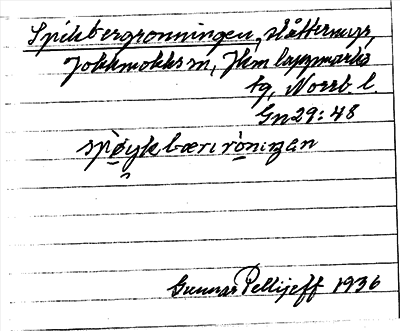 Spikbergronningen, slåttermyr,
Jokkmokks sn, Jkm lappmarks
tg, Norrb l.
Gn 29:48
spøykbæri röningan
Gunnar Pellijeff 1936